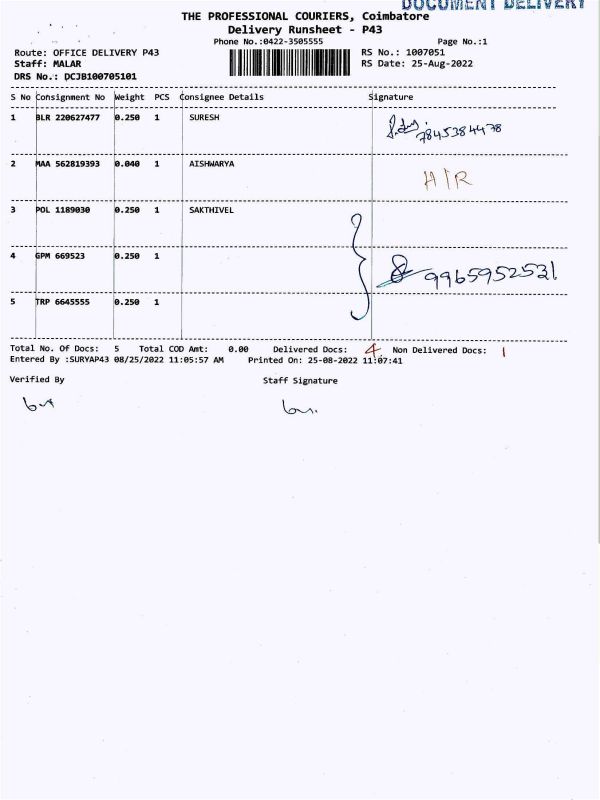 DOCUMENT DELIVERY
THE PROFESSIONAL COURIERS, Coimbatore
Delivery Runsheet - P43
Phone No.:0422-3505555 Page No.:1
Route: OFFICE DELIVERY P43 RS No.: 1007051
Staff: MALAR RS Date: 25-Aug-2022
DRS No.: DCJB100705101
S No Consignment No Weight PCS Consignee Details Signature
1 BLR 220627477 0.250 1 SURESH
7845384478
2 MAA 562819393 0.040 1 AISHWARYA
H/R
3 POL 1189030 0.250 1 SAKTHIVEL
4 GPM 669523 0.250 1
9965952531
5 TRP 6645555 0.250 1
Total No. Of Docs: 5 Total COD Amt: 0.00 Delivered Docs: 4 Non Delivered Docs: 1
Entered By :SURYAP43 08/25/2022 11:05:57 AM Printed On: 25-08-2022 11:07:41
Verified By Staff Signature